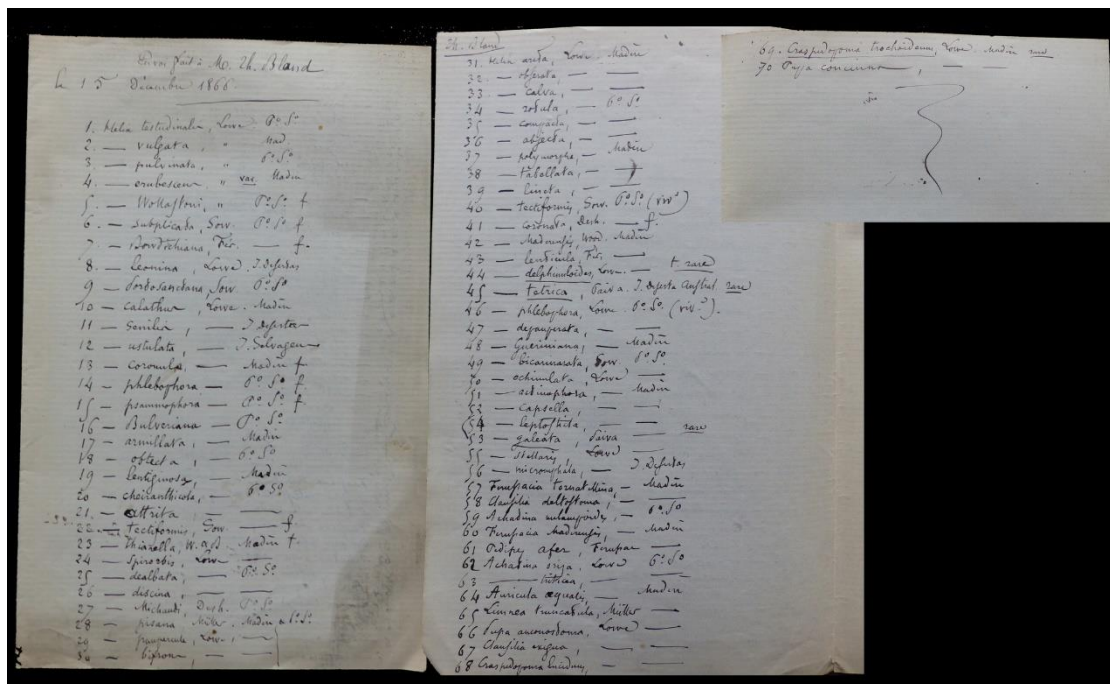 Envoi fait à Mr. Th. Bland
le 15 Décembre 1866.
1. Helix testudinalis, Lowe Po. So.
2. — vulgata, " Mad.
3. — pulvinata, " Po. So.
4. — erubescens " var. Madère
5. — Wollastoni, " Po. So. f
6. — subplicata, Sow. Po. So. f
7. — Bowdichiana, Fér. — f.
8. — leonina, Lowe. I. Desertas
9 — Portosanctana, Sow. Po. So
10 — calathus, Lowe. Madère
11 — senilis, — I. Desertas
12 — ustulata, — I. Selvagens
13 — coronula, — Madère f.
14 — phlebophora — Po. So. f.
15 — psammophora — Po. So. f
16 — Bulveriana — Po. So.
17 — armillata, — Madère
18 — obtecta, — Po. So
19 — lentiginosa, — Madère
20 — cheiranthicola, — Po. So.
21. — attrita — —
22 — tectiformis, Sow — f.
23 — thiarella, W. et B. Madère f.
24 — Spirorbis, Lowe —
25 — dealbata, — Po. So.
26 — discina, — —
27 — Michaudi, Desh. Po. So
28 — pisana Müller. Madère et Po. So.
29 — paupercula, Lowe, —
30 — bifrons, — —
Th. Bland
31. Helix arcta, Lowe. Madère
32. — obserata, — —
33 — calva, — —
34 — rotula, — Po. So
35 — compacta, — —
36 — abjecta, — —
37 — polymorpha, — Madère
38 — tabellata, — —
39 — lincta, — —
40 — tectiformis, Sow. Po. So. (viv.t)
41 — coronata, Desh. — f.
42 — Maderensis, Wood. Madère
43 — lenticula, Fér. —
44 — delphinuloides, Lowe. — t. rare
45 — tetrica, Paiva. I. Deserta Austral rare
46 — phlebophora, Lowe. Po. So. (viv.t).
47 — depauperata, — —
48 — Gueriniana, — Madère
49 — bicarinata, Sow. Po. So.
50 — echinulata, Lowe —
51 — actinophora, — Madère
52 — capsella, — —
54 — leptosticta, — —
53 — galeata, Paiva — rare
55 — stellaris, Lowe —
56 — micromphala, — I. Desertas
57 Ferussacia terebellina, — Madère
58 Clausilia deltostoma, — —
59 Achatina melampoides, — Po. So
60 Ferussacia Maderensis, — Madère
61 Pedipes afer, Ferussac —
62 Achatina oryza, Lowe Po. So
63 — triticea, — —
64 Auricula aequalis, — Madère
65 Limnea truncatula, Müller —
66 Pupa anconostoma, Lowe —
67 Clausilia exigua, — —
68 Craspedopoma lucidum, — —
69. Craspedopoma trochoideum, Lowe. Madère rare
70 Pupa concinna, — —